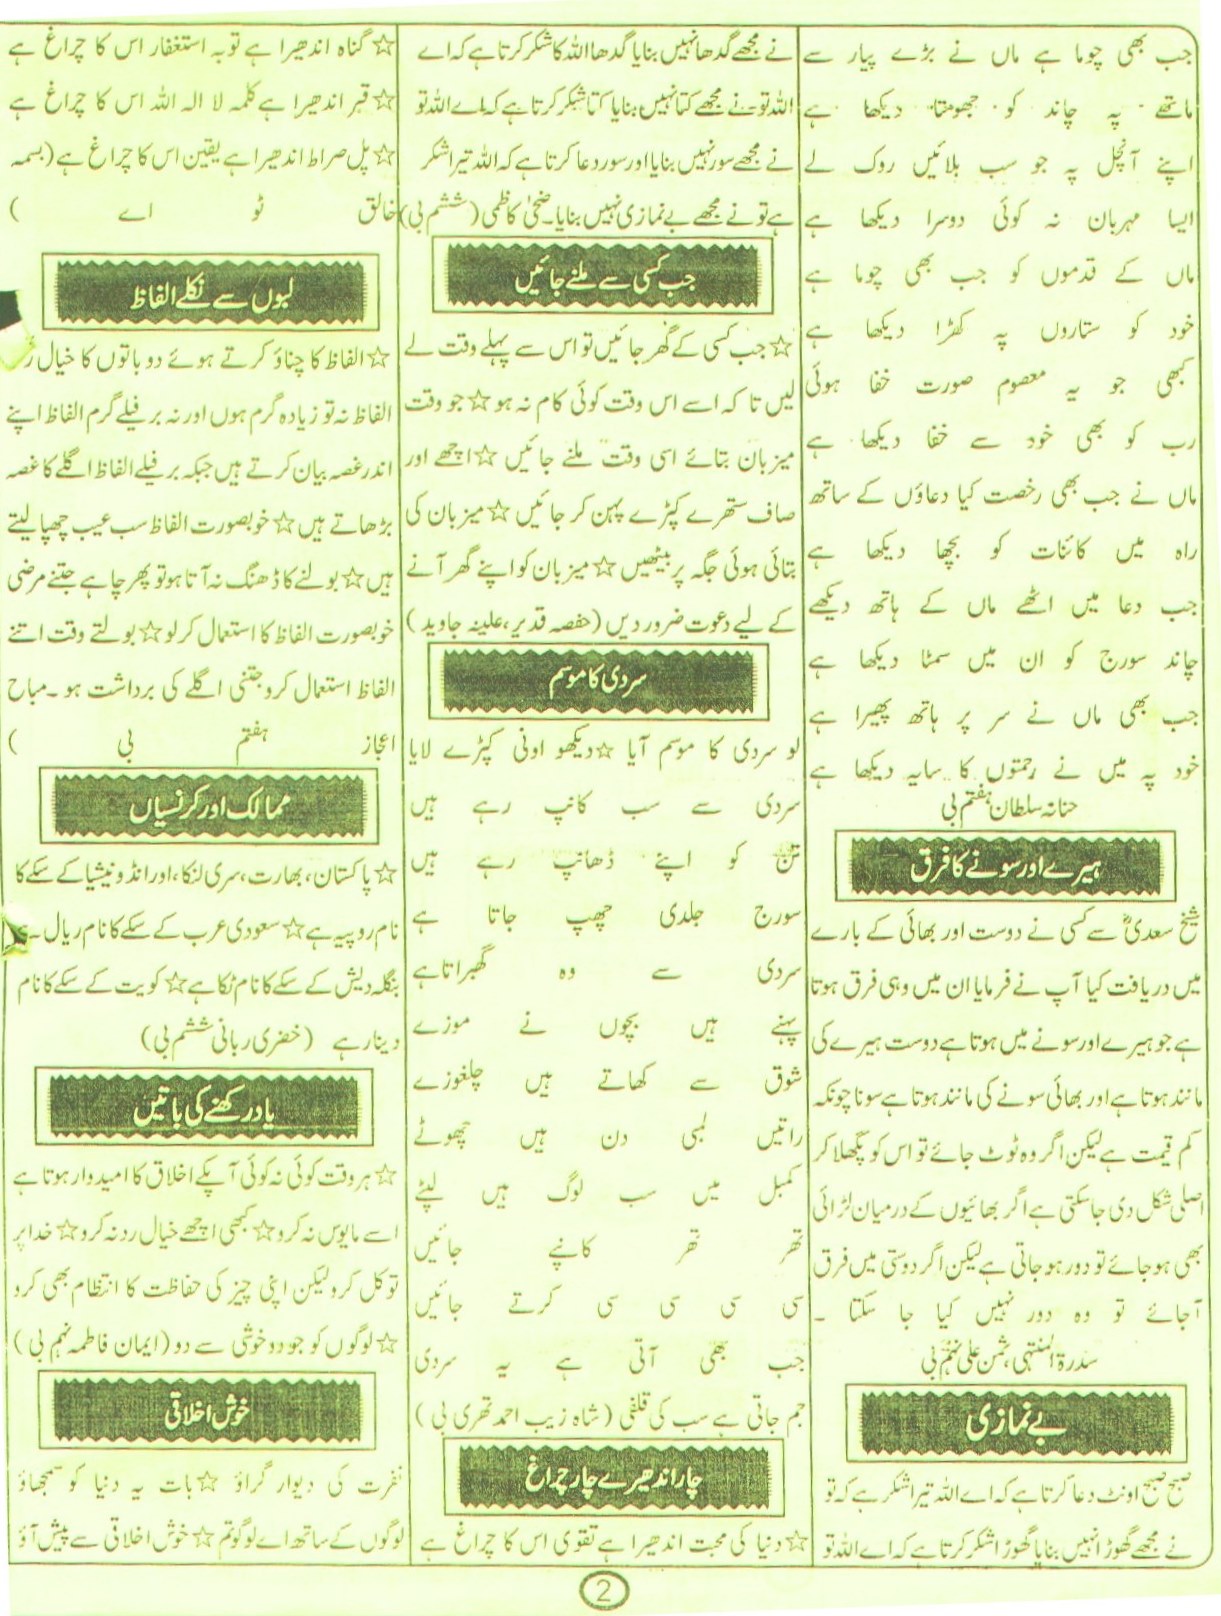 جب بھی چوما ہے ماں نے بڑے پیار سے
ماتھے پہ چاند کو جھومتا دیکھا ہے
اپنے آنچل پہ جو سب بلائیں روک لے
ایسا مہربان نہ کوئی دوسرا دیکھا ہے
ماں کے قدموں کو جب بھی چوما ہے
خود کو ستاروں پہ کھڑا دیکھا ہے
کبھی جو یہ معصوم صورت خفا ہوئی
رب کو بھی خود سے خفا دیکھا ہے
ماں نے جب بھی رخصت کیا دعاؤں کے ساتھ
راہ میں کائنات کو بچھا دیکھا ہے
جب دعا میں اٹھے ماں کے ہاتھ دیکھے
چاند سورج کو ان میں سمٹا دیکھا ہے
جب بھی ماں نے سر پر ہاتھ پھیرا ہے
خود پہ میں نے رحمتوں کا سایہ دیکھا ہے
حنانہ سلطان ہفتم بی
ہیرے اور سونے کا فرق
شیخ سعدیؒ سے کسی نے دوست اور بھائی کے بارے
میں دریافت کیا آپ نے فرمایا ان میں وہی فرق ہوتا
ہے جو ہیرے اور سونے میں ہوتا ہے دوست ہیرے کی
مانند ہوتا ہے اور بھائی سونے کی مانند ہوتا ہے سونا چونکہ
کم قیمت ہے لیکن اگر وہ ٹوٹ جائے تو اس کو پگھلا کر
اصلی شکل دی جاسکتی ہے اگر بھائیوں کے درمیان لڑائی
بھی ہو جائے تو دور ہو جاتی ہے لیکن اگر دوستی میں فرق
آجائے تو وہ دور نہیں کیا جا سکتا ۔
سدرۃ المنتہی، ثمن علی نہم بی
بے نمازی
صبح صبح اونٹ دعا کرتا ہے کہ اے اللہ تیرا شکر ہے کہ تو
نے مجھے گھوڑا نہیں بنایا گھوڑا شکر کرتا ہے کہ اے اللہ تو
نے مجھے گدھا نہیں بنایا گدھا اللہ کا شکر کرتا ہے کہ اے
اللہ تو نے مجھے کتا نہیں بنایا کتا شکر کرتا ہے کہ اے اللہ تو
نے مجھے سور نہیں بنایا اور سور دعا کرتا ہے کہ اللہ تیرا شکر
ہے تو نے مجھے بے نمازی نہیں بنایا۔ ضحیٰ کاظمی (ششم بی)
جب کسی سے ملنے جائیں
☆ جب کسی کے گھر جائیں تو اس سے پہلے وقت لے
لیں تا کہ اسے اس وقت کوئی کام نہ ہو ☆ جو وقت
میزبان بتائے اسی وقت ملنے جائیں ☆ اچھے اور
صاف ستھرے کپڑے پہن کر جائیں ☆ میزبان کی
بتائی ہوئی جگہ پر بیٹھیں ☆ میزبان کو اپنے گھر آنے
کے لیے دعوت ضرور دیں (حفصہ قدیر، علینہ جاوید )
سردی کا موسم
لو سردی کا موسم آیا ☆ دیکھو اونی کپڑے لایا
سردی سے سب کانپ رہے ہیں
تن کو اپنے ڈھانپ رہے ہیں
سورج جلدی چھپ جاتا ہے
سردی سے وہ گھبراتا ہے
پہنے ہیں بچوں نے موزے
شوق سے کھاتے ہیں چلغوزے
راتیں لمبی دن ہیں چھوٹے
کمبل میں سب لوگ ہیں لپٹے
تھر تھر کانپے جائیں
سی سی سی سی کرتے جائیں
جب بھی آتی ہے یہ سردی
جم جاتی ہے سب کی قلفی ( شاہ زیب احمد تھری بی )
چار اندھیرے چار چراغ
☆ دنیا کی محبت اندھیرا ہے تقوی اس کا چراغ ہے
☆ گناہ اندھیرا ہے توبہ استغفار اس کا چراغ ہے
☆ قبر اندھیرا ہے کلمہ لا الہ اللہ اس کا چراغ ہے
☆ پل صراط اندھیرا ہے یقین اس کا چراغ ہے (بسمہ
خالق ٹو اے )
لبوں سے نکلے الفاظ
☆ الفاظ کا چناؤ کرتے ہوئے دو باتوں کا خیال ر
الفاظ نہ تو زیادہ گرم ہوں اور نہ برفیلے گرم الفاظ اپنے
اندر غصہ بیان کرتے ہیں جبکہ برفیلے الفاظ اگلے کا غصہ
بڑھاتے ہیں ☆ خوبصورت الفاظ سب عیب چھپا لیتے
ہیں ☆ بولنے کا ڈھنگ نہ آتا ہو تو پھر چاہے جتنے مرضی
خوبصورت الفاظ کا استعمال کر لو ☆ بولتے وقت اتنے
الفاظ استعمال کرو جتنی اگلے کی برداشت ہو ۔ مباح
اعجاز ہفتم بی )
ممالک اور کرنسیاں
☆ پاکستان، بھارت، سری لنکا، اور انڈونیشیا کے سکے کا
نام روپیہ ہے ☆ سعودی عرب کے سکے کا نام ریال ۔
بنگلہ دیش کے سکے کا نام ٹکا ہے ☆ کویت کے سکے کا نام
دینار ہے (خضری ربانی ششم بی)
یاد رکھنے کی باتیں
☆ ہر وقت کوئی نہ کوئی آپکے اخلاق کا امیدوار ہوتا ہے
اسے مایوس نہ کرو ☆ کبھی اچھے خیال رد نہ کرو ☆ خدا پر
توکل کرو لیکن اپنی چیز کی حفاظت کا انتظام بھی کرو
☆ لوگوں کو جو دو خوشی سے دو (ایمان فاطمہ نہم بی)
خوش اخلاقی
نفرت کی دیوار گراؤ ☆ بات یہ دنیا کو سمجھاؤ
لوگوں کے ساتھ اے لوگو تم ☆ خوش اخلاقی سے پیش آؤ
2